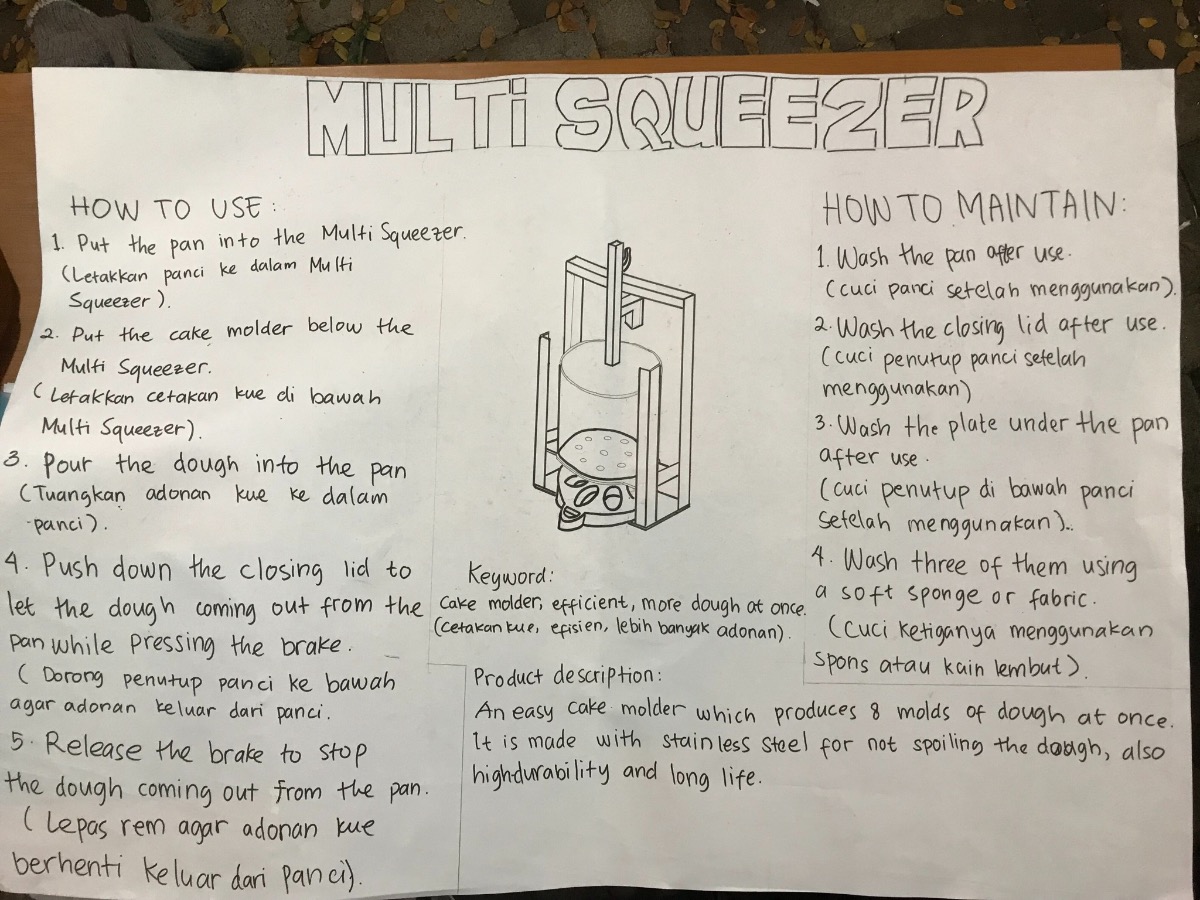 MULTi SQUEEZER
HOW TO USE :
1. Put the pan into the Multi Squeezer.
(Letakkan panci ke dalam Multi
Squeezer).
2. Put the cake molder below the
Multi Squeezer.
(Letakkan cetakan kue di bawah
Multi Squeezer).
3. Pour the dough into the pan
(Tuangkan adonan kue ke dalam
panci).
4. Push down the closing lid to
let the dough coming out from the
pan while pressing the brake.
(Dorong penutup panci ke bawah
agar adonan keluar dari panci.
5. Release the brake to stop
the dough coming out from the pan.
(Lepas rem agar adonan kue
berhenti keluar dari panci).
Keyword:
Cake molder, efficient, more dough at once.
(Cetakan kue, efisien, lebih banyak adonan).
Product description:
An easy cake molder which produces 8 molds of dough at once.
It is made with stainless steel for not spoiling the dough, also
high-durability and long life.
HOW TO MAINTAIN:
1. Wash the pan after use.
(cuci panci setelah menggunakan).
2. Wash the closing lid after use.
(cuci penutup panci setelah
menggunakan)
3. Wash the plate under the pan
after use.
(cuci penutup di bawah panci
setelah menggunakan)..
4. Wash three of them using
a soft sponge or fabric.
(Cuci ketiganya menggunakan
spons atau kain lembut).